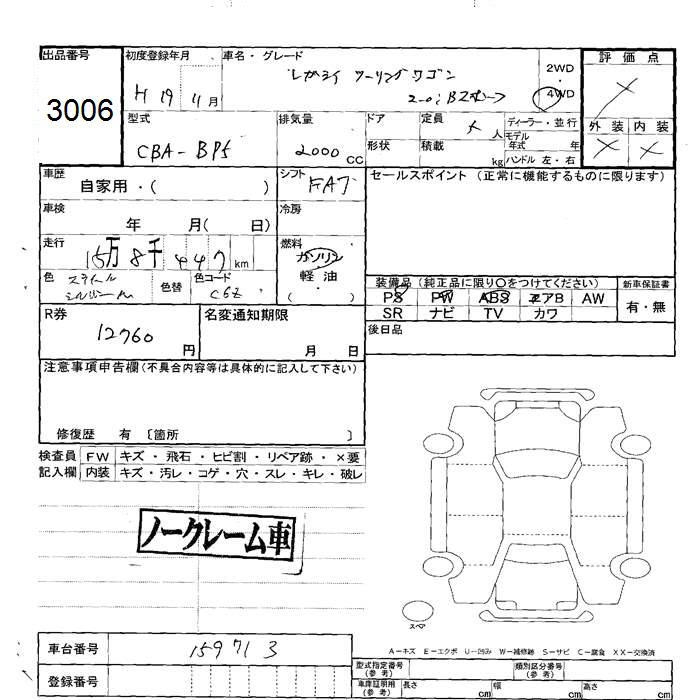 出品番号 初度登録年月 車名・グレード 評価点
3006 H 19 11月 レガシィ ツーリングワゴン 2WD・4WD
2.0i Bスポーツ
型式 排気量 ドア 定員 人 ディーラー・並行 外装 内装
CBA-BP5 2000 CC 形状 積載 kg モデル年式 年 ハンドル 左・右
車歴 自家用・( ) シフト FAT セールスポイント (正常に機能するものに限ります)
車検 年 月( 日) 冷房
走行 15万 8千 447 km 燃料 ガソリン 軽油 ( )
色 色替 色コード C6Z
装備品 (純正品に限り○をつけてください) 新車保証書
PS PW ABS エアB AW 有・無
SR ナビ TV カワ
R券 12760 円 名変通知期限 月 日 後日品
注意事項申告欄(不具合内容等は具体的に記入して下さい)
修復歴 有 〔箇所 〕
検査員 FW キズ・飛石・ヒビ割・リペア跡・×要
記入欄 内装 キズ・汚レ・コゲ・穴・スレ・キレ・破レ
ノークレーム車
スペア
A−キズ E−エクボ U−凹み W−補修跡 S−サビ C−腐食 XX−交換済
車台番号 159713
登録番号
型式指定番号(参考) 類別区分番号(参考)
車庫証明用(参考) 長さ cm 幅 cm 高さ cm